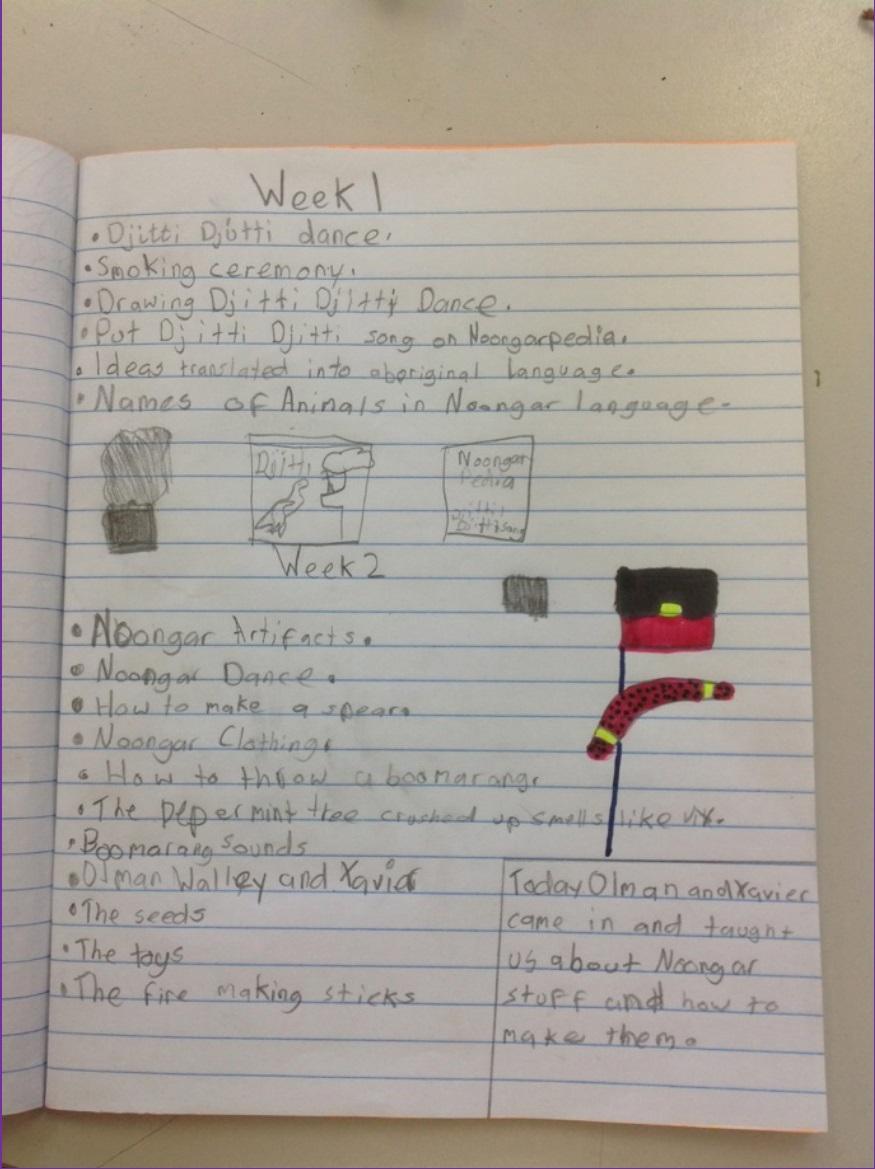 Week 1
• Djitti Djitti dance.
• Smoking ceremony.
• Drawing Djitti Djitty Dance.
• Put Djitti Djitti song on Noongarpedia.
• Ideas translated into aboriginal language.
• Names of Animals in Noongar language.
Djitti
Noongar
Pedia
Djitti
Djitti song
Week 2
• Noongar Artifacts.
• Noongar Dance.
• How to make a spear.
• Noongar Clothing.
• How to throw a boomarang.
• The pepermint tree crushed up smells like vix.
• Boomarang sounds
• Olman Walley and Xavier
• The seeds
• The toys
• The fire making sticks
Today Olman and Xavier
came in and taught
us about Noongar
stuff and how to
make them.